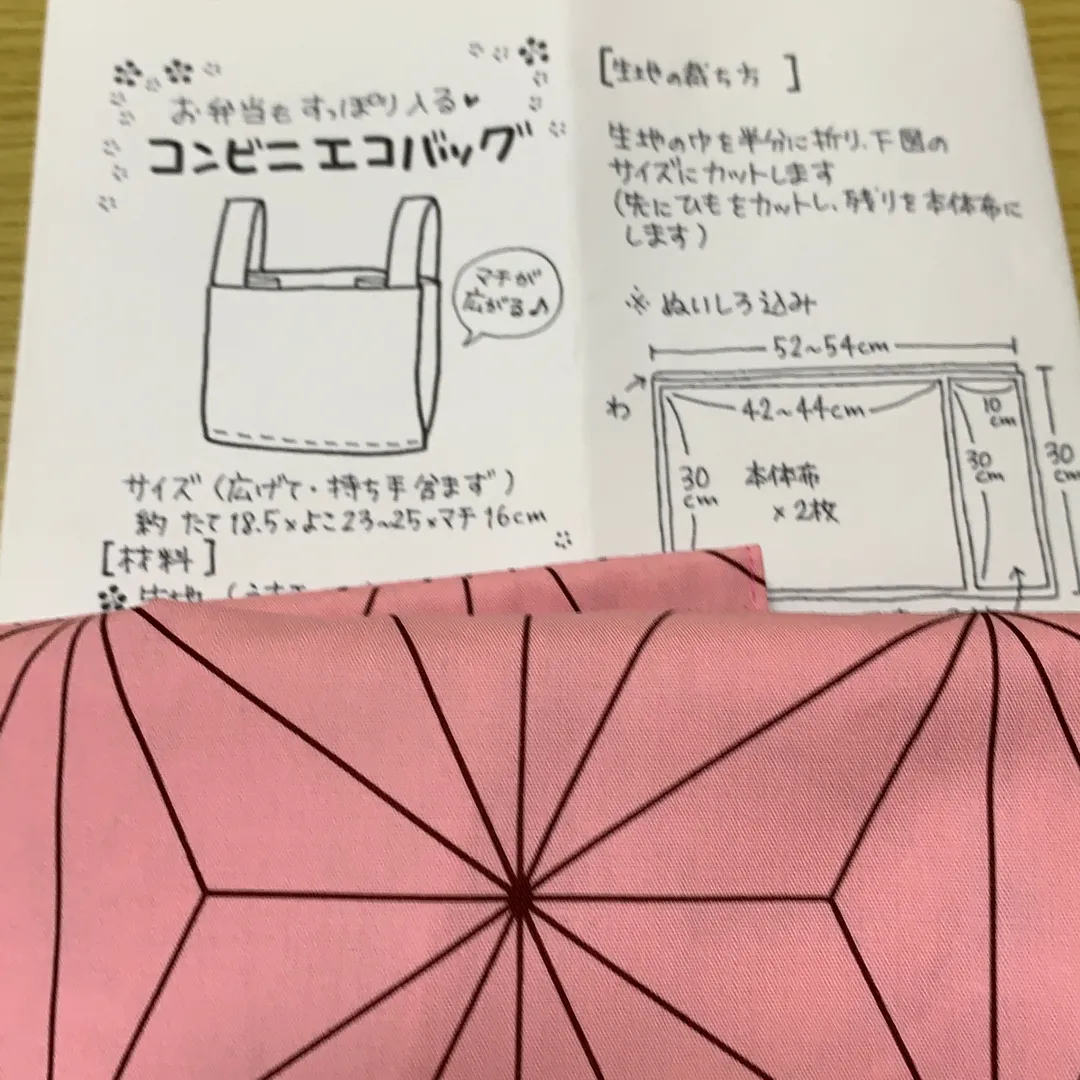 お弁当もすっぽり入る♥
コンビニエコバッグ
マチが
広がる♪
サイズ（広げて・持ち手含まず）
約 たて18.5×よこ23~25×マチ16cm
[材料]
生地
[生地の裁ち方]
生地の巾を半分に折り、下図の
サイズにカットします
(先にひもをカットし、残りを本体布に
します)
※ ぬいしろ込み
52~54cm
わ
42~44cm
10
cm
30
cm
本体布
×2枚
30
cm
30
cm